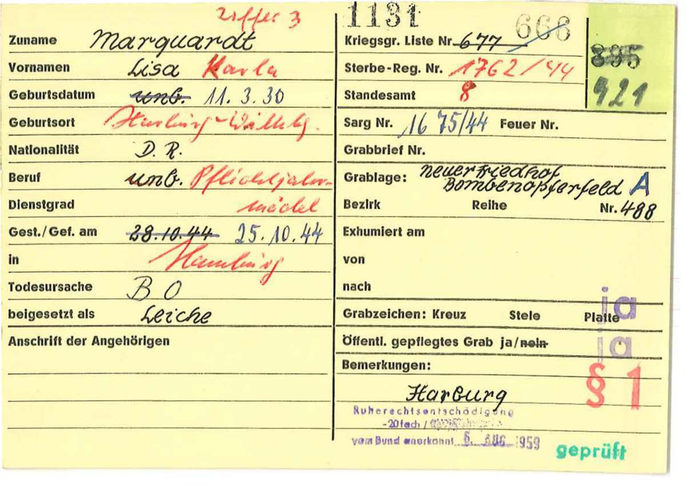 Ziffer 3
Zuname Marquardt
Vornamen Lisa Karla
Geburtsdatum unb. 11.3.30
Geburtsort Harburg-Wilhbg.
Nationalität D.R.
Beruf unb. Pflichtjahr-
Dienstgrad mädel
Gest./Gef. am 28.10.44 25.10.44
in Hamburg
Todesursache BO
beigesetzt als Leiche
Anschrift der Angehörigen
1131
Kriegsgr. Liste Nr. 677 666
Sterbe-Reg. Nr. 1762/44
895
Standesamt 8
921
Sarg Nr. 1675/44 Feuer Nr.
Grabbrief Nr.
Grablage: neuer Friedhof
Bombenopferfeld A
Bezirk Reihe Nr. 488
Exhumiert am
von
nach
Grabzeichen: Kreuz Stele Platte ja
Öffentl. gepflegtes Grab ja/nein ja
Bemerkungen:
§ 1
Harburg
Ruherechtsentschädigung
-20fach /
vom Bund anerkannt 6. AUG. 1959
geprüft